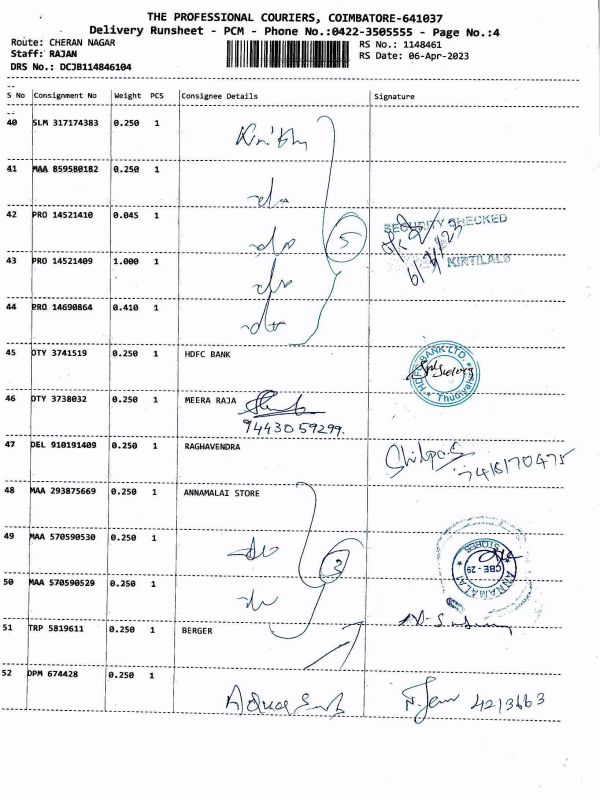 THE PROFESSIONAL COURIERS, COIMBATORE-641037
Delivery Runsheet - PCM - Phone No.:0422-3505555 - Page No.:4
Route: CHERAN NAGAR RS No.: 1148461
Staff: RAJAN RS Date: 06-Apr-2023
DRS No.: DCJB114846104
S No Consignment No Weight PCS Consignee Details Signature
40 SLM 317174383 0.250 1
41 MAA 859580182 0.250 1
42 PRO 14521410 0.045 1
SECURITY CHECKED
5
43 PRO 14521409 1.000 1
KIRTILALS
44 PRO 14690864 0.410 1
45 OTY 3741519 0.250 1 HDFC BANK
HDFC BANK LTD.
46 OTY 3738032 0.250 1 MEERA RAJA
9443059299.
47 DEL 910191409 0.250 1 RAGHAVENDRA
Shilpa.S
7418170475
48 MAA 293875669 0.250 1 ANNAMALAI STORE
49 MAA 570590530 0.250 1
ANNAMALAI STORES
CBE - 29
3
50 MAA 570590529 0.250 1
51 TRP 5819611 0.250 1 BERGER
52 DPM 674428 0.250 1
4213663